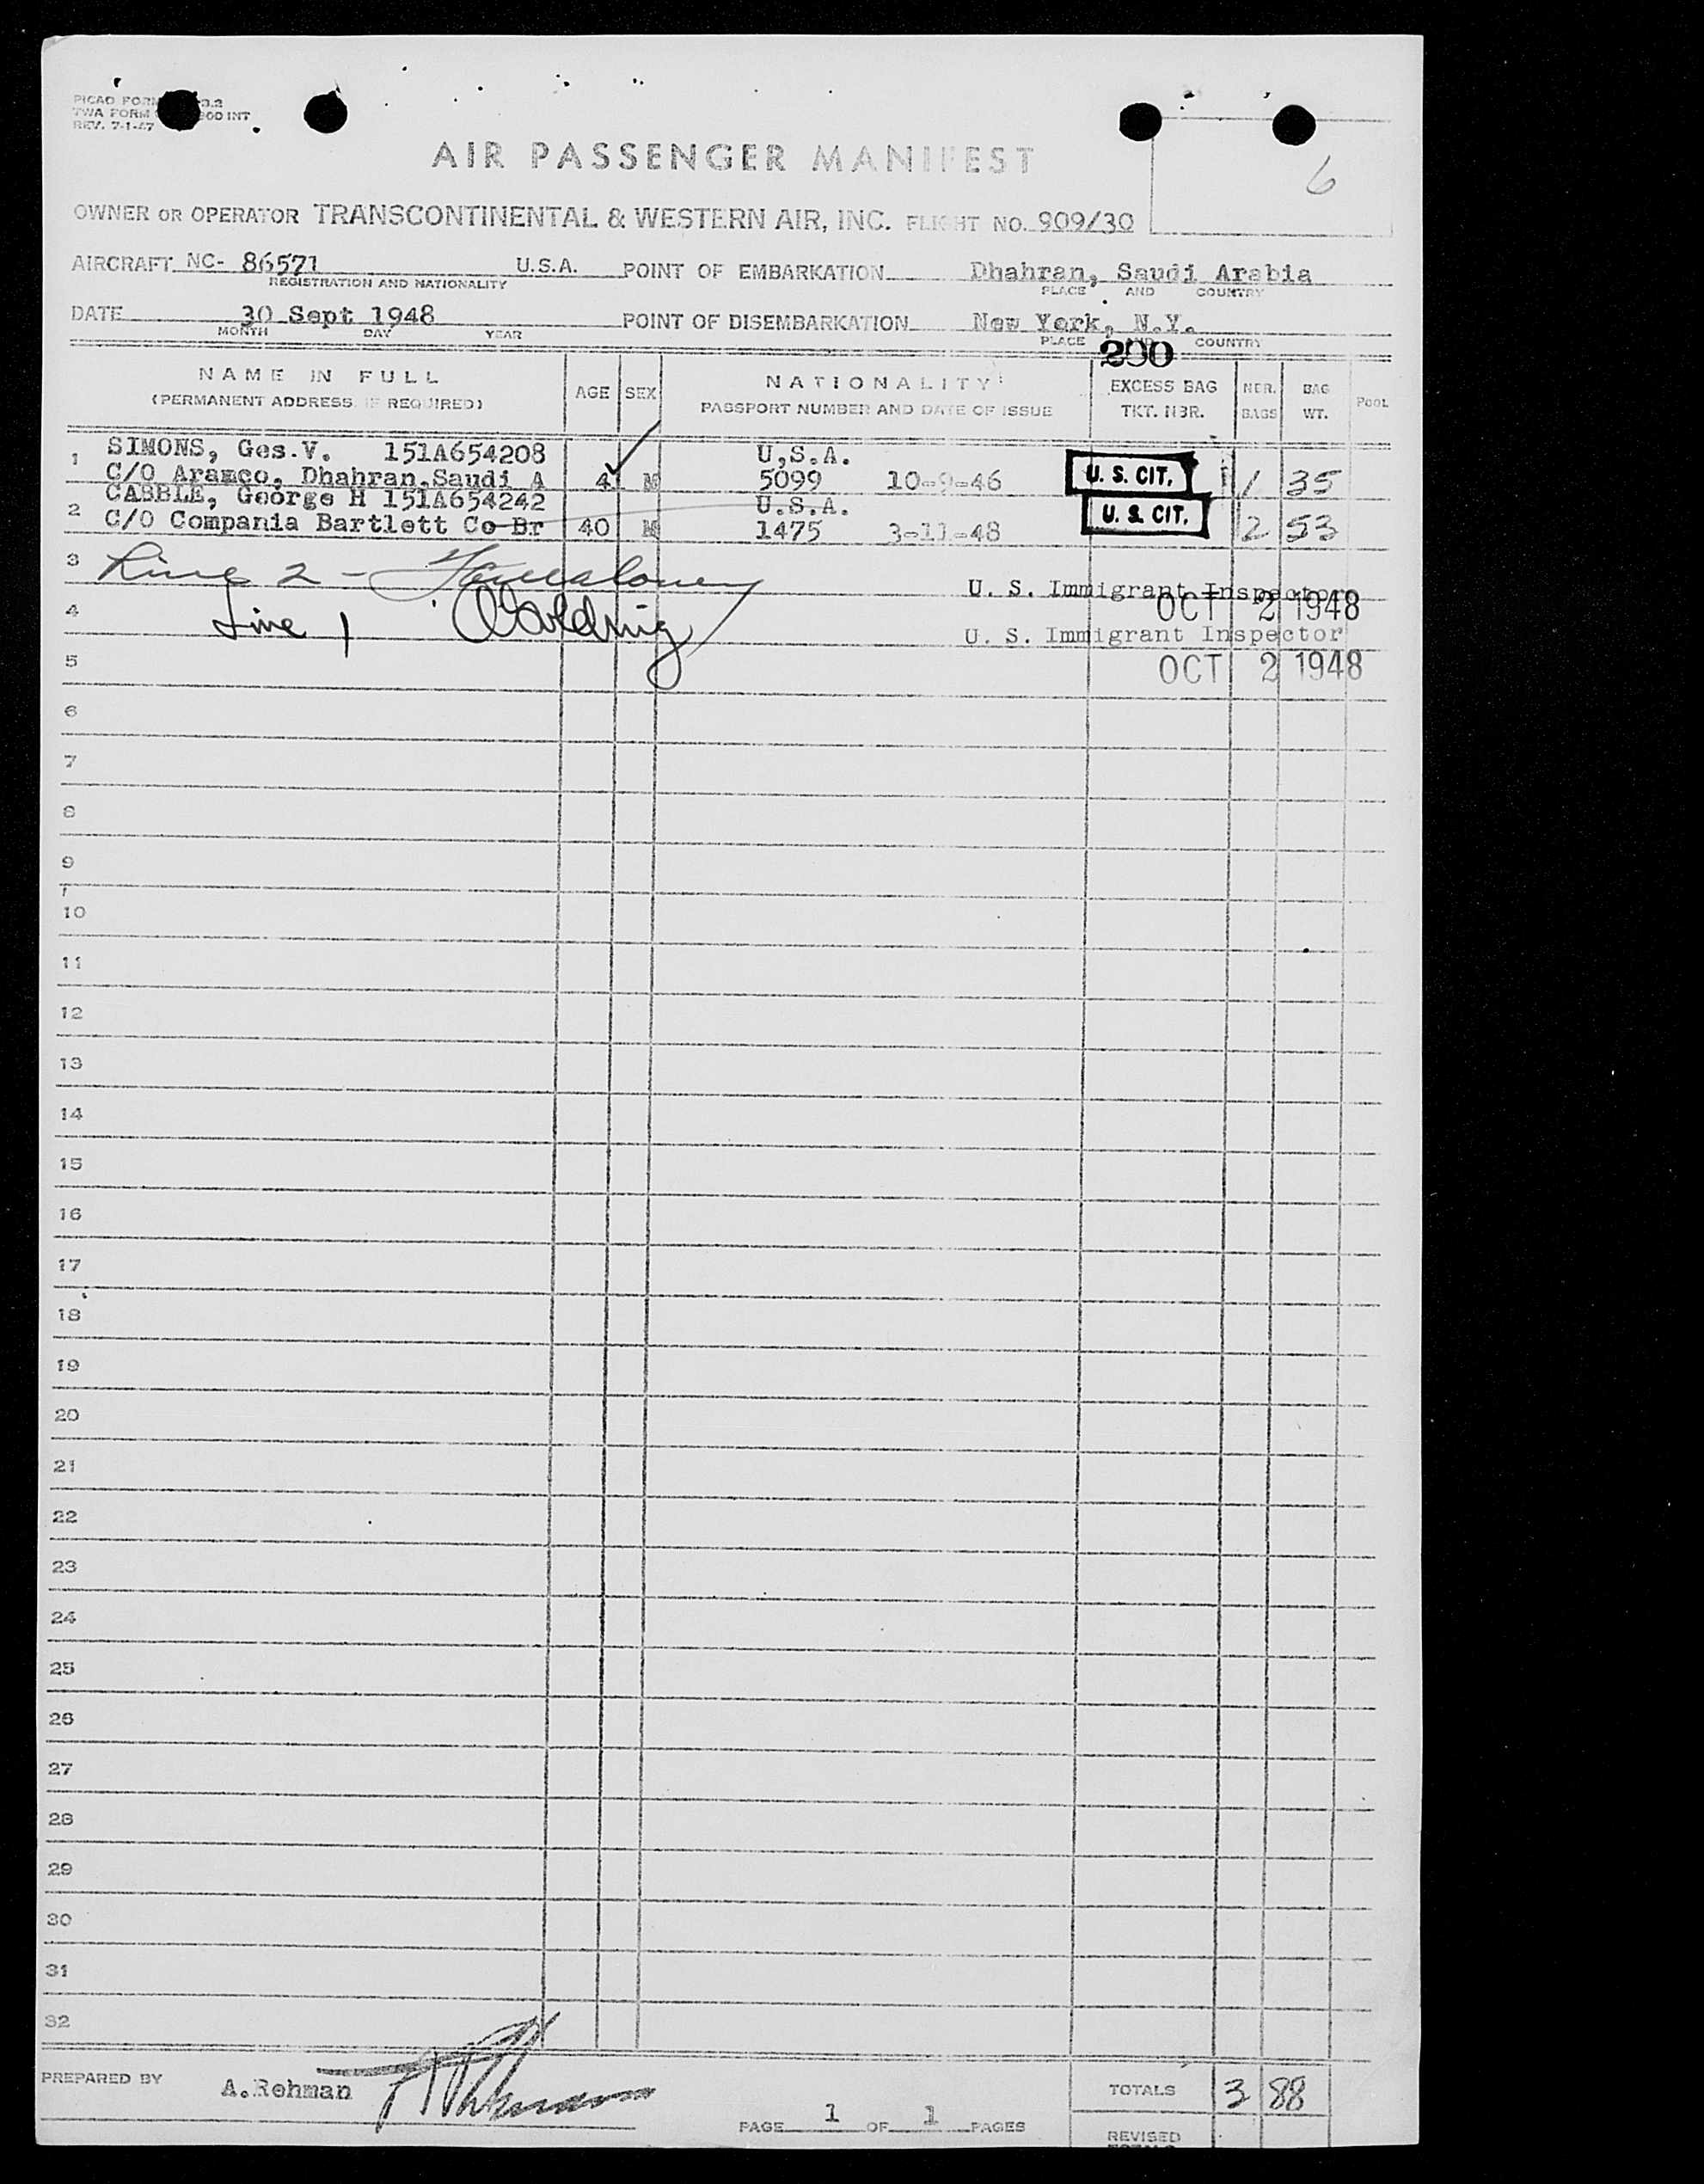 PICAO FORM
TWA FORM
REV. 7-1-47
AIR PASSENGER MANIFEST
6
OWNER OR OPERATOR TRANSCONTINENTAL & WESTERN AIR, INC. FLIGHT NO. 909/30
AIRCRAFT NC- 86571 U.S.A. POINT OF EMBARKATION Dhahran, Saudi Arabia
REGISTRATION AND NATIONALITY PLACE AND COUNTRY
DATE 30 Sept 1948 POINT OF DISEMBARKATION New York, N.Y.
MONTH DAY YEAR PLACE AND COUNTRY
200
NAME IN FULL AGE SEX NATIONALITY EXCESS BAG NBR. BAG POOL
(PERMANENT ADDRESS IF REQUIRED) PASSPORT NUMBER AND DATE OF ISSUE TKT. NBR. BAGS WT.
1 SIMONS, Geo.V. 151A654208 U,S.A.
C/O Aramco, Dhahran,Saudi A M 5099 10-9-46 U. S. CIT. 1 35
2 CABBLE, George H 151A654242 U.S.A.
C/O Compania Bartlett Co Br 40 M 1475 3-11-48 U. S. CIT. 2 53
3 Line 2 -
U. S. Immigrant Inspector
4 Line 1
OCT 2 1948
U. S. Immigrant Inspector
5
OCT 2 1948
6
7
8
9
10
11
12
13
14
15
16
17
18
19
20
21
22
23
24
25
26
27
28
29
30
31
32
PREPARED BY A.Rehman
TOTALS 3 88
PAGE 1 OF 1 PAGES
REVISED